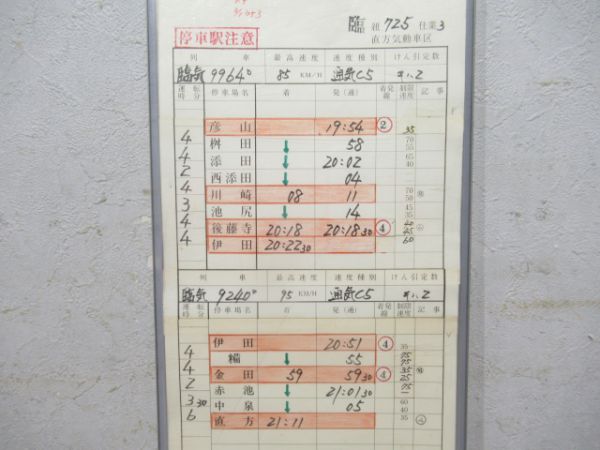 臨 組 725 仕業 3
停車駅注意 直方気動車区
列車 最高速度 速度種別 けん引定数
臨気 9964D 85 KM/H 通気C5 キハ2
運転時分 停車場名 着 発(通) 着発線 制限速度 記事
彦山 19:54 ② 35
4 桝田 ↓ 58 70 55
4 添田 ↓ 20:02 65 40
2 西添田 ↓ 04
4 川崎 08 11 70 50
3 池尻 ↓ 14 45 35
4 後藤寺 20:18 20:18 30 ④
4 伊田 20:22 30 60
列車 最高速度 速度種別 けん引定数
臨気 9240D 95 KM/H 通気C5 キハ2
運転時分 停車場名 着 発(通) 着発線 制限速度 記事
伊田 20:51 ④ 35
4 糒 ↓ 55
4 金田 59 59 30 ④
2 赤池 ↓ 21:01 30
3 30 中泉 ↓ 05 60 40
6 直方 21:11 35